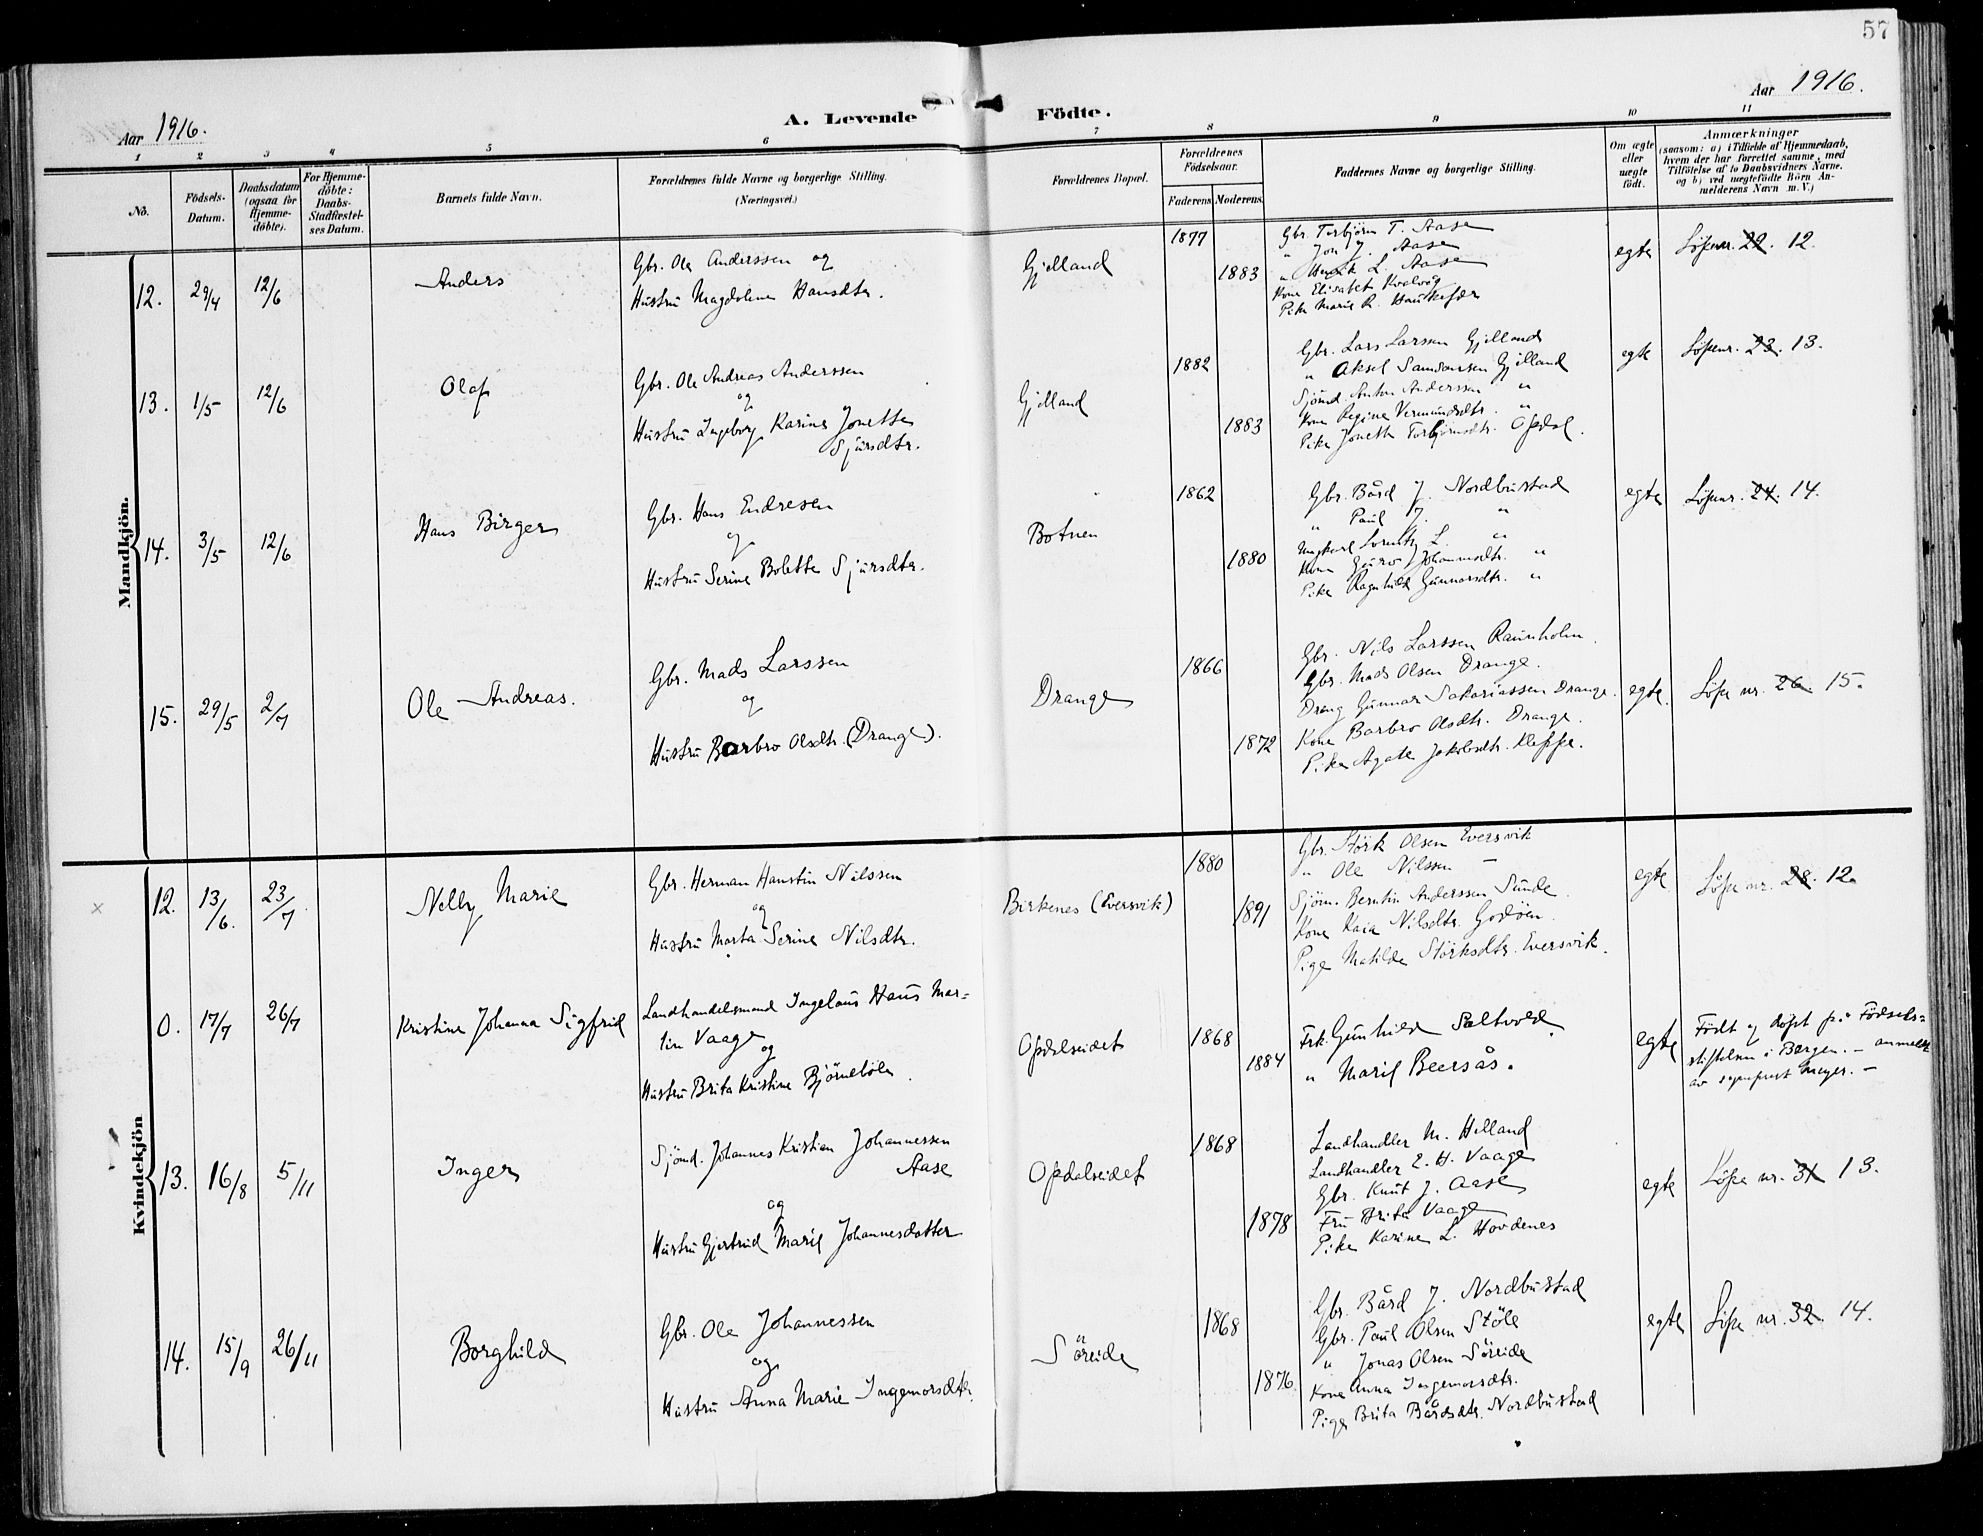 57
Aar 1916.
A. Levende Födte.
Aar 1916.
1 2 3 4 5 6 7 8 9 10 11
No.
Födsels-Datum.
Daabsdatum (ogsaa for Hjemme-döbte).
For Hjemme-döbte: Daabs-Stadfæstel-ses Datum.
Barnets fulde Navn.
Forældrenes fulde Navne og borgerlige Stilling.
(Næringsvei.)
Forældrenes Bopæl.
Forældrenes Födselsaar.
Faderens Moderens.
Faddernes Navne og borgerlige Stilling.
Om ægte eller uægte födt.
Anmærkninger
(saasom: a) i Tilfælde af Hjemmedaab,
hvem der har forrettet samme, med
Tilföielse af to Daabsvidners Navne.
og b) ved uægtefödte Börn An-
melderens Navn m. V.)
Mandkjön.
12. 29/4 12/6 Anders
Gbr. Ole Anderssen og
Hustru Magdolena Hansdtr.
Gjelland
1877
1883
Gbr. Torbjörn T. Aase
" Jon J. Aase
" Henrik L. Aase
Kone Elisabet Kvalvåg
Pike Marie R.
egte
Löpenr. 22. 12.
13. 1/5 12/6 Olaf
Gbr. Ole Andreas Anderssen
og
Hustru Ingeborg Karina Jonette
Sjursdtr.
Gjelland
1882
1883
Gbr. Lars Larssen Gjelland
" Aksel Samsonsen Gjelland
Sjömd. Anton Anderssen "
Kone Regine Vermundsdtr. "
Pike Jonetta Torbjörnsdtr. Opdal.
egte
Löpenr. 23. 13.
14. 3/5 12/6 Hans Birger
Gbr. Hans Endresen
og
Hustru Serina Bolette Sjursdtr.
Botnen
1862
1880
Gbr. Bård J. Nordbustad
" Paul J. "
Ungkarl Lorentz L. "
Kone Guro Johannesdtr. "
Pike Ragnhild Gunnarsdtr. "
egte
Löpenr. 24. 14.
15. 29/5 2/7 Ole Andreas.
Gbr. Mads Larssen
og
Hustru Barbro Olsdtr. (Drange).
Drange
1866
1872
Gbr. Nils Larssen Raunholm.
Gbr. Mads Olsen Drange.
Dreng Gunnar Sakariassen Drange.
Kone Barbro Olsdtr. Drange.
Pike Agata Jakobsdtr. Kleppe.
egte.
Löpe nr. 26. 15.
Kvindekjön
x
12. 13/6. 23/7. Nelly Marie
Gbr. Herman Hanstin Nilssen
og
Hustru Marta Serina Nilsdtr.
Birkenes (Eversvik)
1880
1891
Gbr. Störk Olsen Eversvik
" Ole Nilssen —
Sjöm. Berntin Anderssen Sunde.
Kone Kaia Nilsdtr. Godöen.
Pige Matilde Störksdtr. Eversvik.
egte
Löpe nr. 28. 12.
0. 17/7 26/7 Kristine Johanna Sigfrid
Landhandelsmand Ingelaus Hans Mar=
tin Vaage
og
Hustru Brita Kristine Björnebole.
Opdalseidet
1868
1884
Frk. Gunhild Saltvold.
" Marie Beersås.
egte
Födt og döpt på Födsels=
stiftelsen i Bergen. — anmeldt
av sogneprest Meyer. —
13. 16/8 5/11 Inger
Sjömd. Johannes Kristian Johannessen
Aase
og
Hustru Gjertrud Marie Johannesdatter
Opdalseidet
1868
1878
Landhandler M. Helland
Landhandler E. H. Vaage
Gbr. Knut J. Aase
Fru Brita Vaage
Pike Karine L. Hovdenes
egte
Löpe nr. 31 13.
14. 15/9 26/11 Borghild
Gbr. Ole Johannessen
og
Hustru Anna Marie Ingemorsdtr.
Söreide
1868
1876.
Gbr. Bård J. Nordbustad
Gbr. Paul Olsen Stöle
" Jonas Olsen Söreide
Kone Anna Ingemorsdtr.
Pige Brita Bårdsdtr. Nordbustad
egte
Löpe nr. 32. 14.